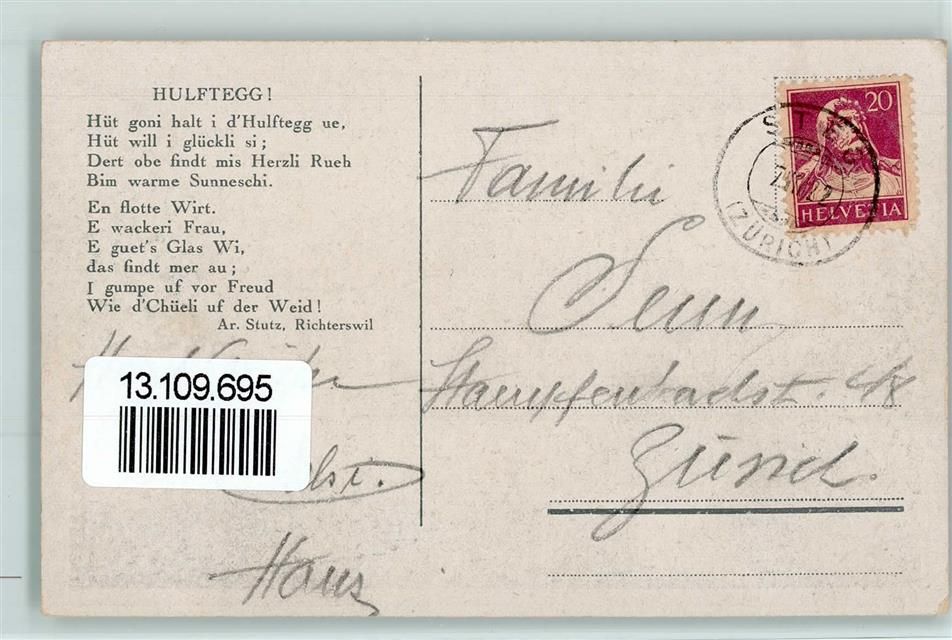 HULFTEGG!
Hüt goni halt i d'Hulftegg ue,
Hüt will i glückli si;
Dert obe findt mis Herzli Rueh
Bim warme Sunneschi.
En flotte Wirt.
E wackeri Frau,
E guet's Glas Wi,
das findt mer au;
I gumpe uf vor Freud
Wie d'Chüeli uf der Weid!
Ar. Stutz, Richterswil
13.109.695
Hans
20
HELVETIA
STEG
(ZÜRICH)
Familie
Senn
Zürich.